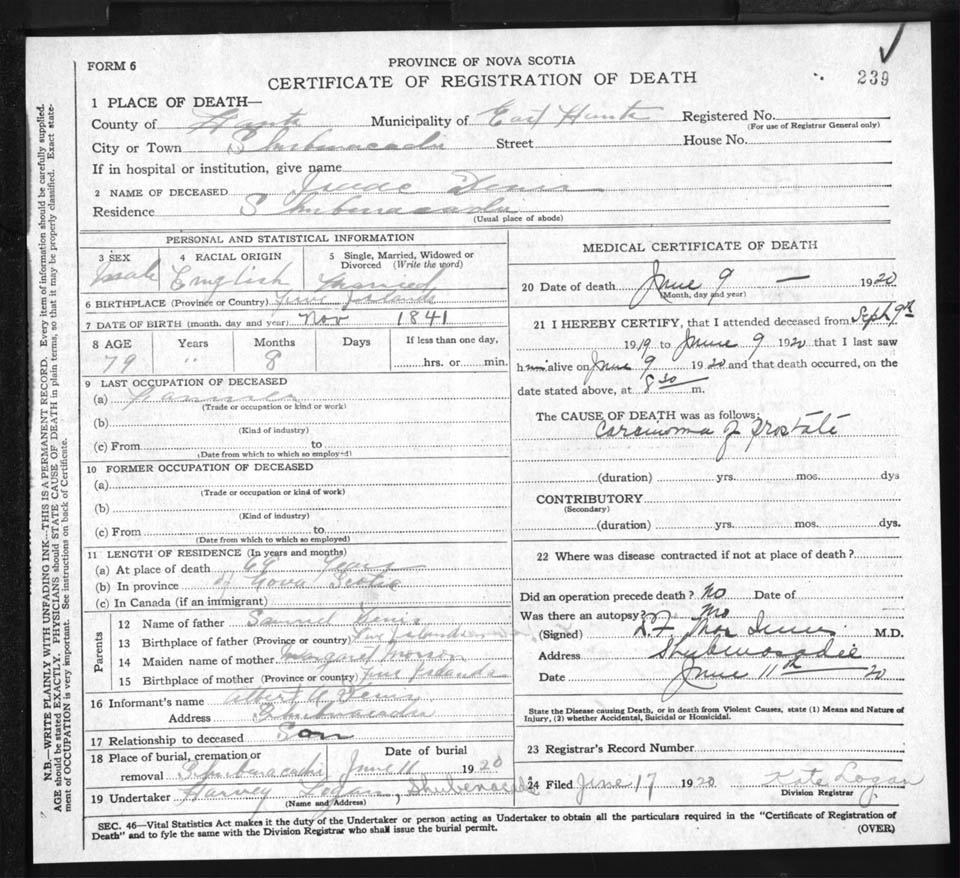 239
FORM 6
PROVINCE OF NOVA SCOTIA
CERTIFICATE OF REGISTRATION OF DEATH
1 PLACE OF DEATH—
County of Hants Municipality of East Hants Registered No.
(For use of Registrar General only)
City or Town Shubenacadie Street House No.
If in hospital or institution, give name
2 NAME OF DECEASED
Residence Shubenacadie
(Usual place of abode)
PERSONAL AND STATISTICAL INFORMATION
3 SEX 4 RACIAL ORIGIN 5 Single, Married, Widowed or Divorced (Write the word)
Male English Married
6 BIRTHPLACE (Province or Country) Five Islands
7 DATE OF BIRTH (month, day and year) Nov 1841
8 AGE Years Months Days If less than one day,
79 " 8 hrs. or min.
9 LAST OCCUPATION OF DECEASED
(a) Farmer
(Trade or occupation or kind or work)
(b)
(Kind of industry)
(c) From to
(Date from which to which so employed)
10 FORMER OCCUPATION OF DECEASED
(a)
(Trade or occupation or kind of work)
(b)
(Kind of industry)
(c) From to
(Date from which to which so employed)
11 LENGTH OF RESIDENCE (In years and months)
(a) At place of death 69 years
(b) In province of Nova Scotia
(c) In Canada (if an immigrant)
Parents
12 Name of father Samuel
13 Birthplace of father (Province or country) Five Islands
14 Maiden name of mother Margaret Morrison
15 Birthplace of mother (Province or country) Five Islands
16 Informant's name Albert
Address Shubenacadie
17 Relationship to deceased Son
18 Place of burial, cremation or removal Shubenacadie Date of burial June 11 1920
19 Undertaker Harvey Logan, Shubenacadie
(Name and Address)
MEDICAL CERTIFICATE OF DEATH
20 Date of death June 9 — 1920
(Month, day and year)
21 I HEREBY CERTIFY, that I attended deceased from Sept 9th
1919 to June 9 1920 that I last saw
him alive on June 9 1920 and that death occurred, on the
date stated above, at 8 30 m.
The CAUSE OF DEATH was as follows:
Carcinoma of Prostate
(duration) yrs. mos. dys
CONTRIBUTORY
(Secondary)
(duration) yrs. mos. dys.
22 Where was disease contracted if not at place of death?
Did an operation precede death? No Date of
Was there an autopsy? No
(Signed) M.D.
Address Shubenacadie
Date June 11th 20
State the Disease causing Death, or in death from Violent Causes, state (1) Means and Nature of
Injury, (2) whether Accidental, Suicidal or Homicidal.
23 Registrar's Record Number
24 Filed June 17 1920 Kate Logan
Division Registrar
SEC. 46—Vital Statistics Act makes it the duty of the Undertaker or person acting as Undertaker to obtain all the particulars required in the "Certificate of Registration of
Death" and to fyle the same with the Division Registrar who shall issue the burial permit.
(OVER)
N.B.—WRITE PLAINLY WITH UNFADING INK—THIS IS A PERMANENT RECORD. Every item of information should be carefully supplied.
AGE should be stated EXACTLY. PHYSICIANS should STATE CAUSE OF DEATH in plain terms, so that it may be properly classified. Exact state-
ment of OCCUPATION is very important. See instructions on back of Certificate.